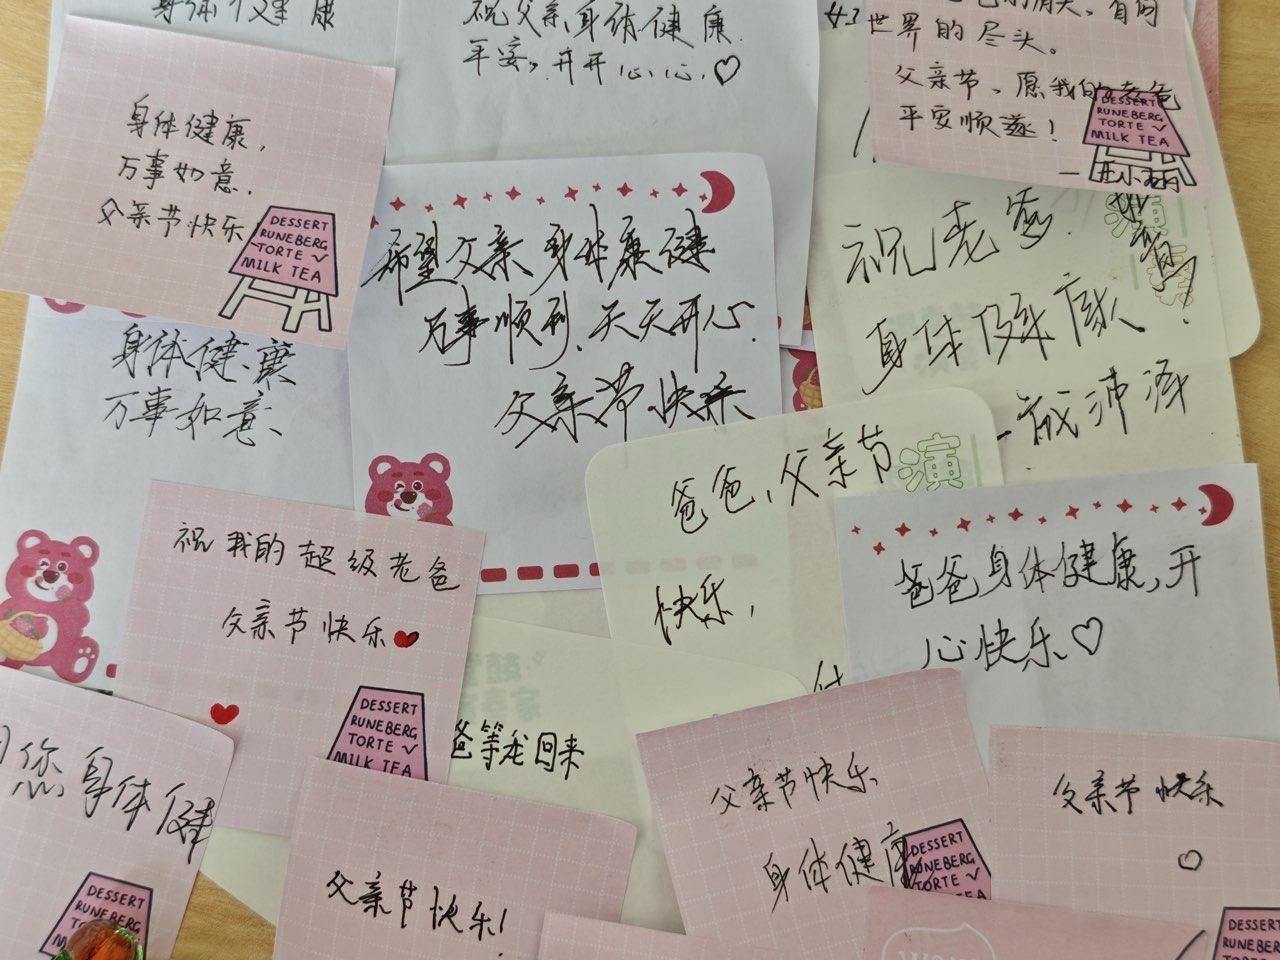 身体健康
祝父亲身体健康
平安,开开心心.♡
世界的尽头。
父亲节、愿我的老爸
平安顺遂!
DESSERT
RUNEBERG
TORTE
MILK TEA
身体健康,
万事如意.
父亲节快乐
DESSERT
RUNEBERG
TORTE
MILK TEA
希望父亲身体康健
万事顺利.天天开心.
父亲节快乐
祝老爸.
身体健康!
身体健康
万事如意
爸爸,父亲节
快乐,
演
爸爸身体健康,开
心快乐♡
祝我的超级老爸
父亲节快乐
DESSERT
RUNEBERG
TORTE
MILK TEA
爸等我回来
您身体健
DESSERT
RUNEBERG
父亲节快乐!
父亲节快乐
身体健康
DESSERT
RUNEBERG
TORTE
MILK TEA
父亲节快乐
DESSERT
RUNEBERG